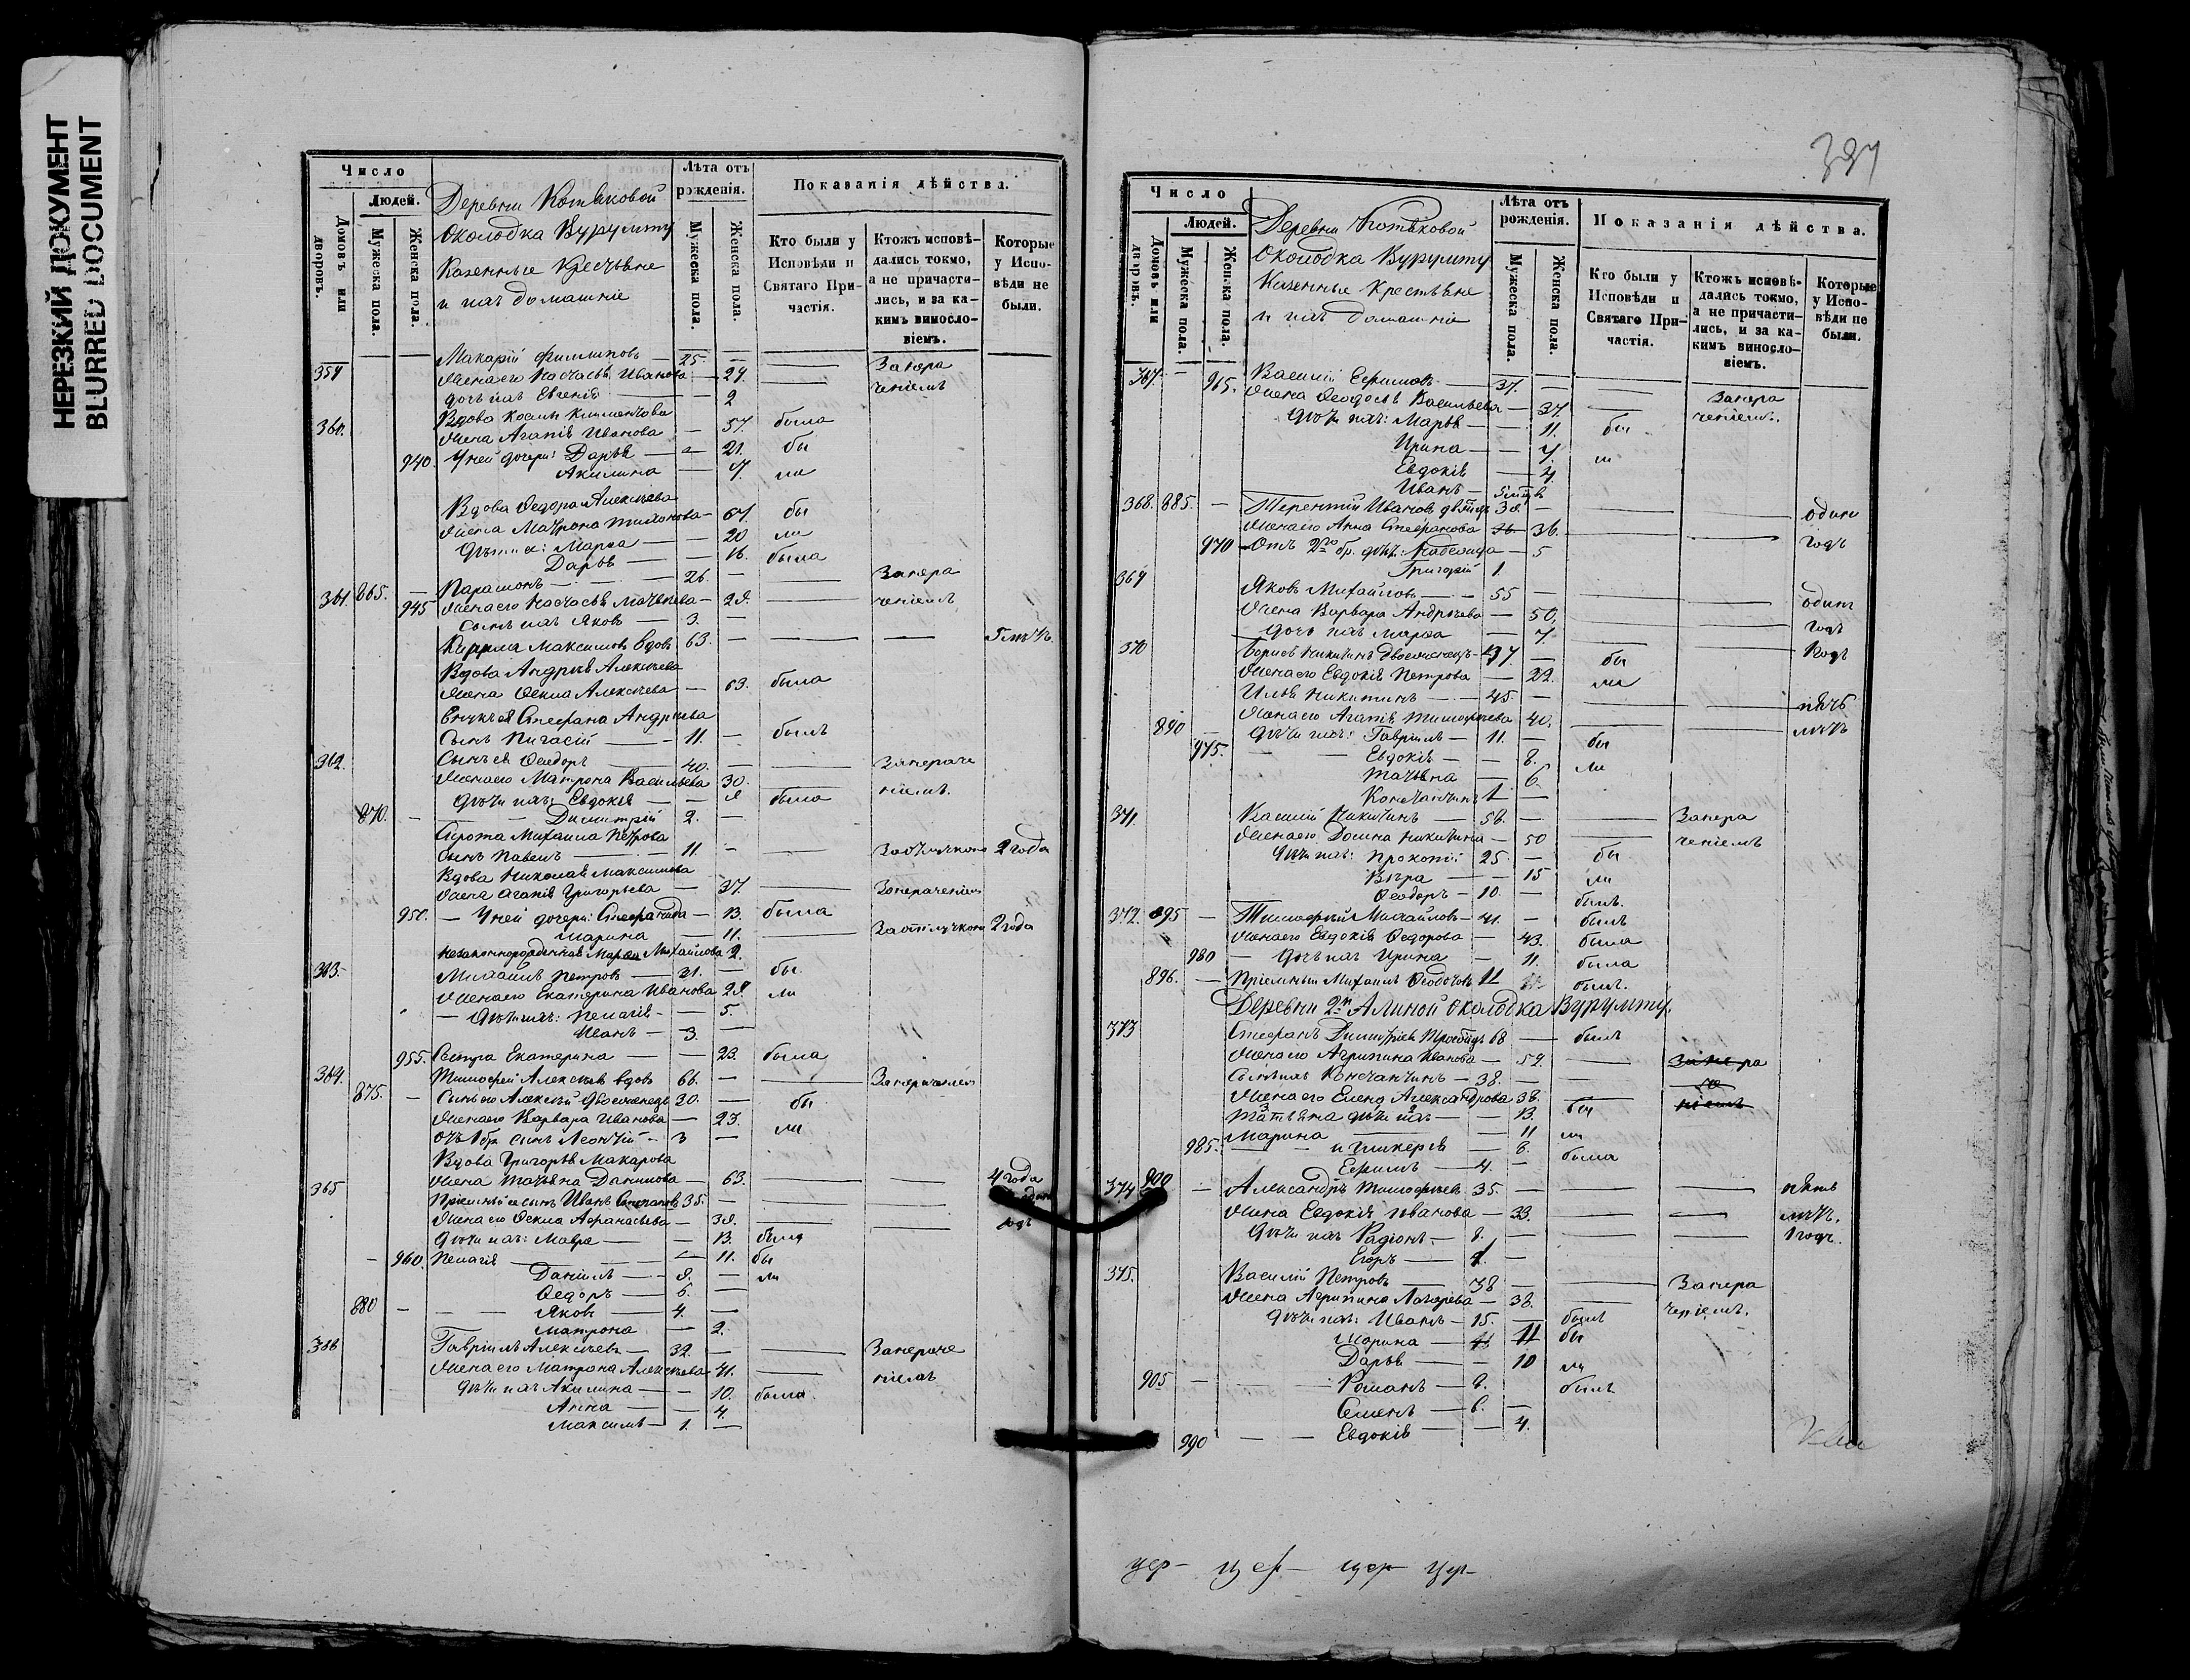 НЕРЕЗКИЙ ДОКУМЕНТ
BLURRED DOCUMENT
Число
Людей.
Домовъ или дворовъ.
Мужеска пола.
Женска пола.
Деревни Котяковой
Околодка Вурумту
Казенные Крестьяне
и ихъ домашніе
Лѣта отъ рожденія.
Мужеска пола.
Женска пола.
Показанія дѣйства.
Кто были у Исповѣди и Святаго Причастія.
Ктожъ исповѣдались токмо, а не причастились, и за какимъ винословіемъ.
Которые у Исповѣди не были.
359 Макарій Филиповъ — 25. — Запера
Жена его Настасья Иванова — 24. ченіемъ
дочь ихъ Евгенія — 2
360. Вдова
Жена Агапія Иванова — 57. была
940. У ней дочери: Дарья — 21. бы
Акилина — 7. ли
Вдова Федора Алексѣева
Жена Матрона — 67. бы
Марѳа — 20 ли
Дарья — 16. была
361. 865. — Парамонъ — 26. — Запера
945 Жена его Настасья Матвѣева — 28. ченіемъ
Сынъ ихъ Яковъ — 3. —
Кирила Максимовъ вдовъ 63. — 5 лѣтъ.
Вдова Андрея Алексѣева
Жена Ѳекла Алексѣева — 63. была
Внукъ ея Стефана Андреева
Сынъ — 11. — былъ
362. Сынъ ея Ѳеодоръ — 40. — Запераче
Жена его Матрона Васильева 30. ніемъ.
Дѣти ихъ: Евдокія — 8 была
870. — Димитрій 2. —
Сирота Михаила Петрова
Сынъ Павелъ — 11. — За отлучкою 2 года
Вдова Николая Максимова
Жена Агапія Григорьева — 37. Запераченіемъ
950. — У ней дочери: Стефанида — 13. была
Марина — 11. За отлучкою 2 года
Незаконнорожденная Михайлова 2.
363. Михаилъ Петровъ — 31. — бы
Жена его Екатерина Иванова 28. ли
— Дѣти ихъ: Пелагія — 5.
Иванъ — 3. —
955. Сестра Екатерина — 23. была
364. Тимофей Алексѣевъ вдовъ 66. — Запераченіемъ
875. — Сынъ его Алексѣй двоеженецъ 30. — бы
Жена его Варвара Иванова — 23. ли
отъ 1 бр. сынъ Леонтій — 3 —
Вдова Григорья Макарова
365 Жена Татьяна Данилова — 63. 4 года
Пріемный ея сынъ Иванъ Степановъ 35. —
Жена его Ѳекла Афанасьева — 38. годъ
Дѣти ихъ: Мавра — 13. была
960. Пелагія — 11. бы
Даніилъ — 8. — ли
Ѳедоръ — 6. —
880 — Яковъ — 4. —
Матрона — 2.
366 Гавріилъ Алексѣевъ — 32. — Запераче
Жена его Матрона Алексѣева 41. ніемъ
Дѣти ихъ Акилина — 10. была
Анна — 4.
Максимъ — 1. —
397
Число
Людей.
Домовъ или дворовъ.
Мужеска пола.
Женска пола.
Деревни Котяковой
Околодка Вурумту
Казенные Крестьяне
и ихъ домашніе
Лѣта отъ рожденія.
Мужеска пола.
Женска пола.
Показанія дѣйства.
Кто были у Исповѣди и Святаго Причастія.
Ктожъ исповѣдались токмо, а не причастились, и за какимъ винословіемъ.
Которые у Исповѣди не были.
367. — 965. Василій Ефимовъ — 37. — Запера
Жена Ѳеодосья Васильева — 37. ченіемъ.
Дѣти ихъ: Марья — 11. бы
Ирина — 7. ли
Евдокія — 4
Иванъ —
368. 885. — Терентій Ивановъ 38. — одинъ
Жена его Анна Стефанова 36. годъ
970 — Отъ 2го бр. дѣти: — 5
Григорій 1.
369 Яковъ Михайловъ — 55 — одинъ
Жена Варвара Андреева — 50. годъ
дочь ихъ Марѳа — 7 годъ
370 Борисъ Никитинъ двоеженецъ — 37. — бы
Жена его Евдокія Петрова — 22. ли
Илья Никитинъ — 45 — пять
Жена его Агапія Тимофеева 40. лѣтъ
890 — Дѣти ихъ: Гавріилъ — 11. — бы
975. — Евдокія — 8. ли
Татьяна — 6.
Константинъ 1 —
371. Василій Никитинъ — 56. — Запера
Жена его Домна Никитина — 50 ченіемъ
Дѣти ихъ: Прокопій 25 — бы
Вѣра — 15 ли
Ѳеодоръ — 10. — былъ.
372. 895 — Тимофѣй Михайловъ — 41. — былъ
Жена его Евдокія Ѳедорова — 43. была
980 — Дочь ихъ Ирина — 11. была
896. — Пріемный Михаилъ Ѳеодотовъ 11 былъ.
Деревни 2й Алиной околодка Вурумту.
373 Стефанъ Димитріевъ 68 — былъ
Жена его Агрипина Иванова — 52. Запера
Сынъ ихъ Константинъ — 38. —
Жена его Елена Александрова 38.
Татьяна дѣти ихъ — 13. бы ніемъ
Марина — 11 ли
985. — и Гликерія — 8. была
Ефимъ — 4. —
374 900 — Александръ Тимофѣевъ 35. — пять
Жена Евдокія Иванова — 33. лѣтъ.
Дѣти ихъ Радіонъ — 8. — 1 годъ.
Егоръ —
375. Василій Петровъ — 38 — Запера
Жена Агрипина — 38. ченіемъ.
Дѣти ихъ: Иванъ — 15. — былъ
Марина — 11 бы
Дарья — 10 ли
905 — Романъ — 8. былъ
Семенъ — 6. —
990 — Евдокія — 4.
цер — цер — цер цер —